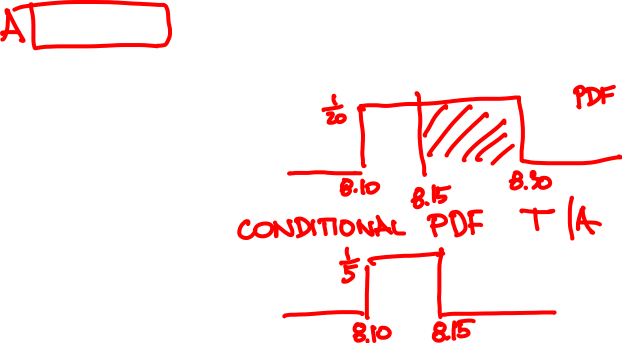 A
PDF
1/20
8.10 8.15 8.30
CONDITIONAL PDF T|A
1/5
8.10 8.15